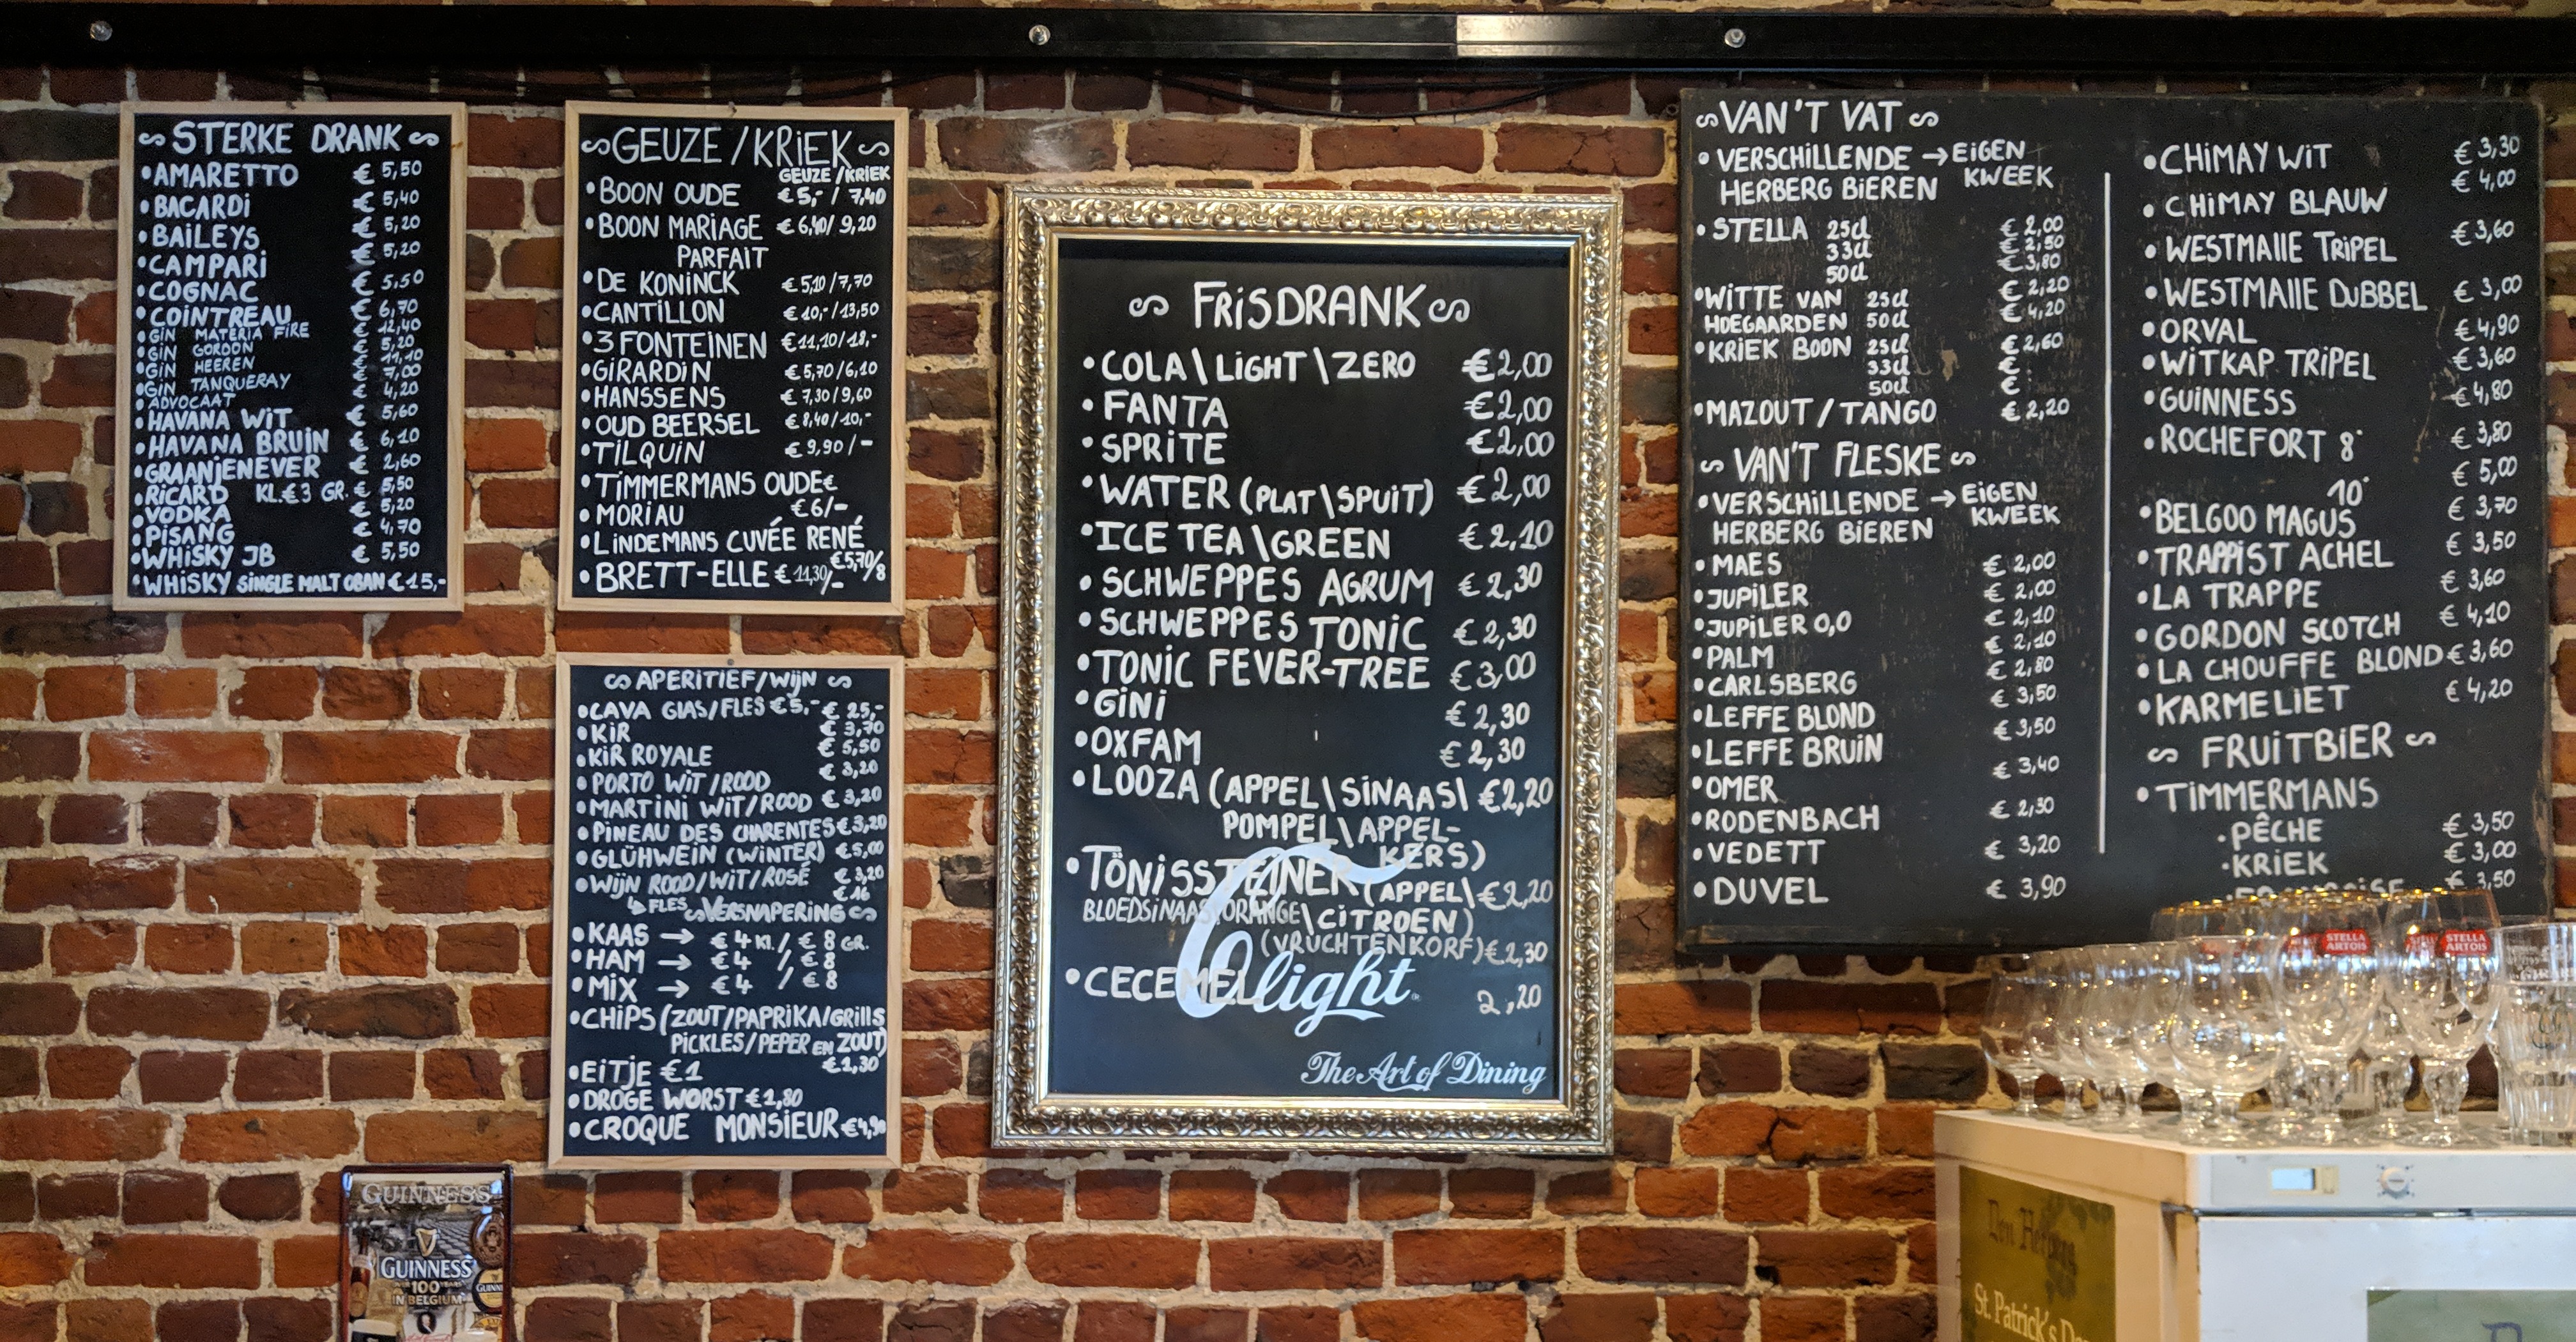 STERKE DRANK
• AMARETTO € 5,50
• BACARDI € 5,40
• BAILEYS € 5,20
• CAMPARI € 5,20
• COGNAC € 5,50
• COINTREAU € 6,70
• GIN MATERIA FIRE € 12,40
• GIN GORDON € 5,20
• GIN HEEREN € 11,10
• GIN TANQUERAY € 7,00
• ADVOCAAT € 4,20
• HAVANA WIT € 5,60
• HAVANA BRUIN € 6,10
• GRAANJENEVER € 2,60
• RICARD KL.€3 GR. € 5,50
• VODKA € 5,20
• PISANG € 4,70
• WHISKY JB € 5,50
• WHISKY SINGLE MALT OBAN € 15,-
GEUZE/KRIEK
GEUZE/KRIEK
• BOON OUDE € 5,- / 7,40
• BOON MARIAGE € 6,40/ 9,20
PARFAIT
• DE KONINCK € 5,10/7,70
• CANTILLON € 10,-/13,50
• 3 FONTEINEN € 11,10/18,-
• GIRARDIN € 5,70/6,10
• HANSSENS € 7,30/9,60
• OUD BEERSEL € 8,40/10,-
• TILQUIN € 9,90/-
• TIMMERMANS OUDE€
• MORIAU € 6/-
• LINDEMANS CUVÉE RENÉ
€5,70/8
• BRETT-ELLE € 11,30/-
APERITIEF/WIJN
• CAVA GLAS/FLES €5,- € 25,-
• KIR € 3,70
• KIR ROYALE € 5,50
• PORTO WIT/ROOD € 3,20
• MARTINI WIT/ROOD € 3,20
• PINEAU DES CHARENTES €3,20
• GLÜHWEIN (WINTER) €5,00
• WIJN ROOD/WIT/ROSÉ € 3,20
↳ FLES € 16
VERSNAPERING
• KAAS → € 4 KL. / € 8 GR.
• HAM → € 4 / € 8
• MIX → € 4 / € 8
• CHIPS (ZOUT/PAPRIKA/GRILLS
PICKLES/PEPER EN ZOUT)
€1,30
• EITJE €1
• DROGE WORST €1,80
• CROQUE MONSIEUR €4,90
FRISDRANK
• COLA\LIGHT\ZERO €2,00
• FANTA €2,00
• SPRITE €2,00
• WATER (PLAT\SPUIT) €2,00
• ICE TEA\GREEN € 2,10
• SCHWEPPES AGRUM € 2,30
• SCHWEPPES TONIC € 2,30
• TONIC FEVER-TREE € 3,00
• GINI € 2,30
• OXFAM € 2,30
• LOOZA (APPEL\SINAAS\ €2,20
POMPEL\APPEL-
KERS)
• TÖNISSTEINER (APPEL\ €2,20
BLOEDSINAAS/ORANGE\CITROEN)
(VRUCHTENKORF) € 2,30
• CECEMEL 2,20
light
The Art of Dining
VAN'T VAT
• VERSCHILLENDE → EIGEN
HERBERG BIEREN KWEEK
• STELLA 25cl € 2,00
33cl € 2,50
50cl € 3,80
• WITTE VAN 25cl € 2,20
HOEGAARDEN 50cl € 4,20
• KRIEK BOON 25cl € 2,60
33cl €
50cl €
• MAZOUT/TANGO € 2,20
VAN'T FLESKE
• VERSCHILLENDE → EIGEN
HERBERG BIEREN KWEEK
• MAES € 2,00
• JUPILER € 2,00
• JUPILER 0,0 € 2,10
• PALM € 2,10
• CARLSBERG € 2,80
• LEFFE BLOND € 3,50
• LEFFE BRUIN € 3,50
• OMER € 3,40
• RODENBACH € 2,30
• VEDETT € 3,20
• DUVEL € 3,90
• CHIMAY WIT € 3,30
• CHIMAY BLAUW € 4,00
• WESTMALLE TRIPEL € 3,60
• WESTMALLE DUBBEL € 3,00
• ORVAL € 4,90
• WITKAP TRIPEL € 3,60
• GUINNESS € 4,80
• ROCHEFORT 8° € 3,80
10° € 5,00
• BELGOO MAGUS € 3,70
• TRAPPIST ACHEL € 3,50
• LA TRAPPE € 3,60
• GORDON SCOTCH € 4,10
• LA CHOUFFE BLOND € 3,60
• KARMELIET € 4,20
FRUITBIER
• TIMMERMANS
• PÊCHE € 3,50
• KRIEK € 3,00
€ 3,50
STELLA ARTOIS
STELLA ARTOIS
GUINNESS
GUINNESS
100
IN BELGIUM
St. Patrick's